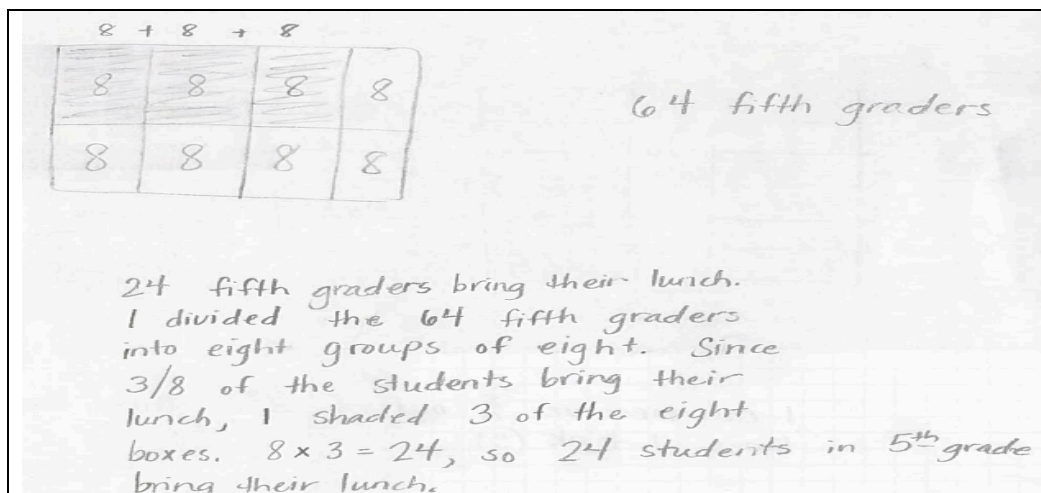 8 + 8 + 8
8 8 8 8
8 8 8 8
64 fifth graders
24 fifth graders bring their lunch.
I divided the 64 fifth graders
into eight groups of eight. Since
3/8 of the students bring their
lunch, I shaded 3 of the eight
boxes. 8 x 3 = 24, so 24 students in 5th grade
bring their lunch.